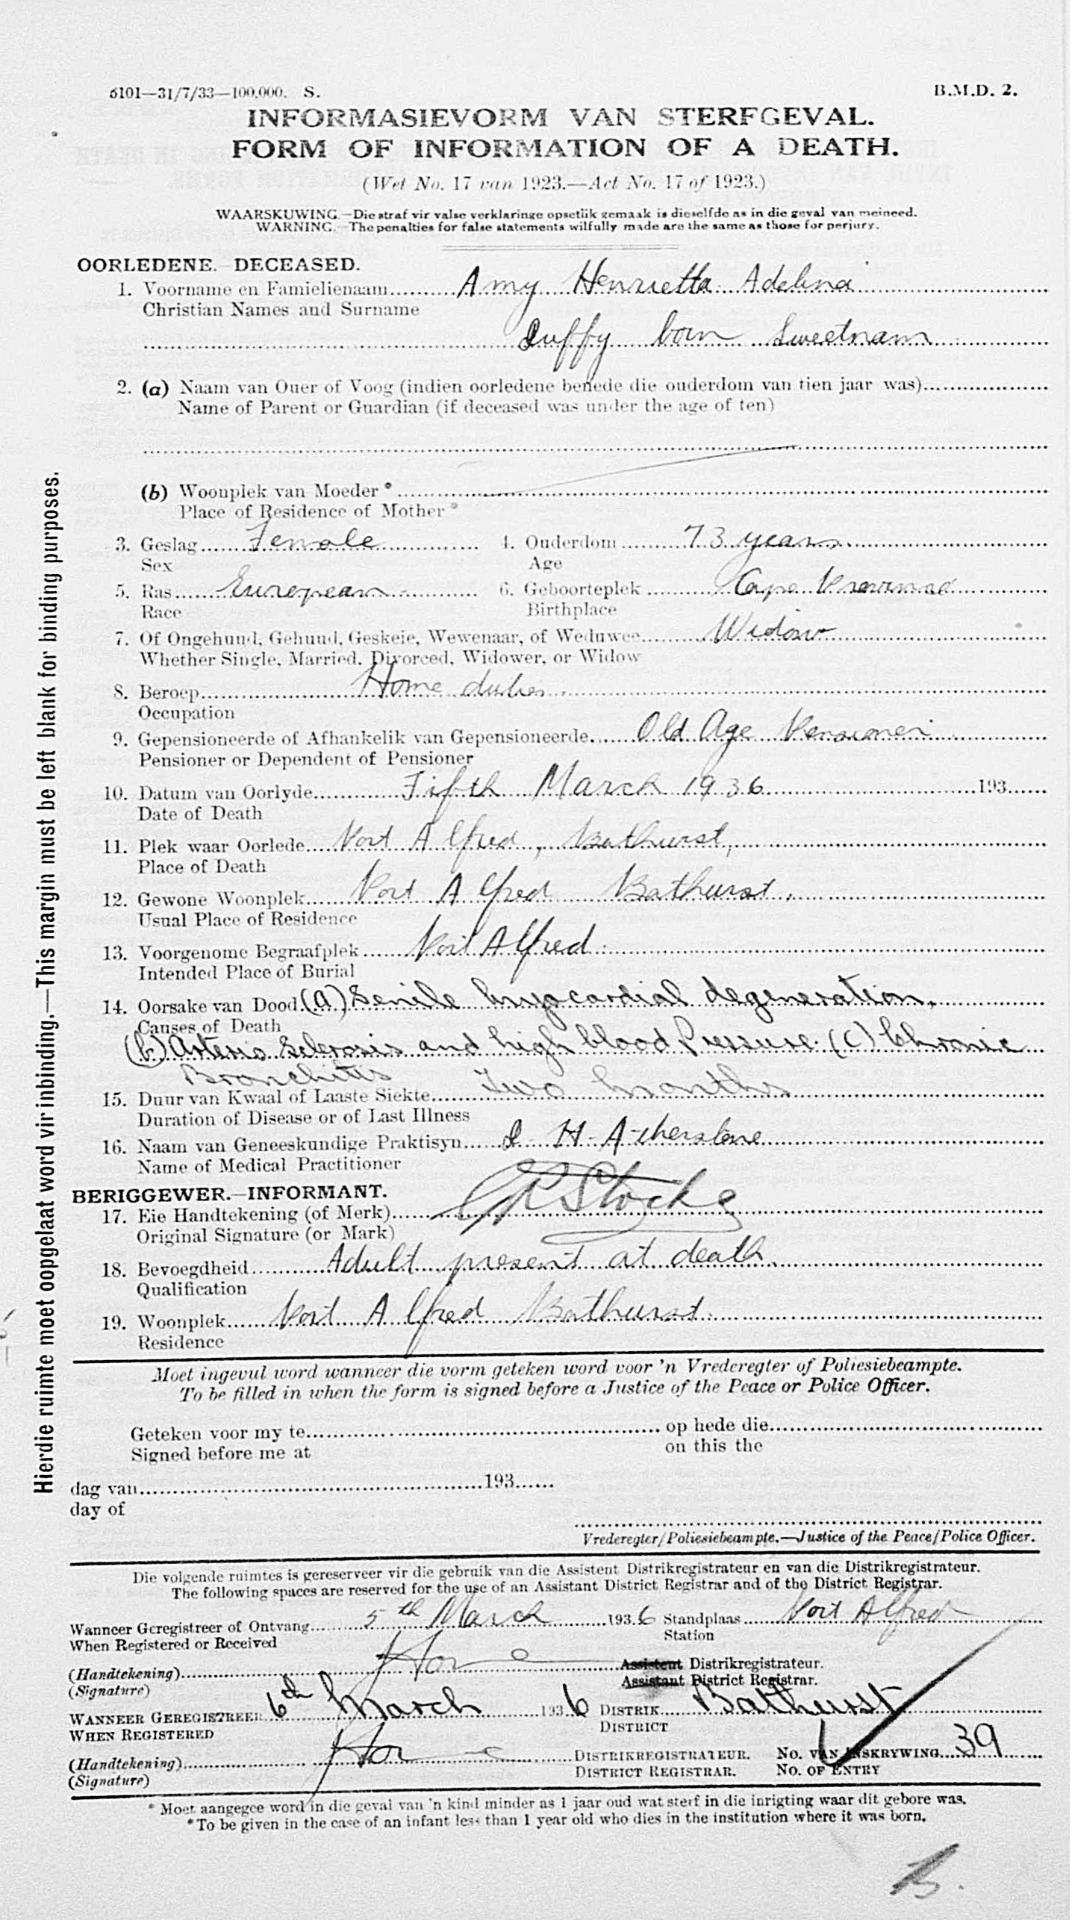 6101—31/7/33—100,000. S.
B.M.D. 2.
INFORMASIEVORM VAN STERFGEVAL.
FORM OF INFORMATION OF A DEATH.
(Wet No. 17 van 1923.—Act No. 17 of 1923.)
WAARSKUWING.—Die straf vir valse verklaringe opsetlik gemaak is dieselfde as in die geval van meineed.
WARNING.—The penalties for false statements wilfully made are the same as those for perjury.
OORLEDENE.—DECEASED.
1. Voorname en Familienaam Amy Henrietta Adelina
Christian Names and Surname
Duffy born Sweetnam
2. (a) Naam van Ouer of Voog (indien oorledene benede die ouderdom van tien jaar was)
Name of Parent or Guardian (if deceased was under the age of ten)
(b) Woonplek van Moeder *
Place of Residence of Mother *
3. Geslag Female 4. Ouderdom 73 years
Sex Age
5. Ras European 6. Geboorteplek Cape Province
Race Birthplace
7. Of Ongehuud, Gehuud, Geskeie, Wewenaar, of Weduwee Widow
Whether Single, Married, Divorced, Widower, or Widow
8. Beroep Home duties
Occupation
9. Gepensioneerde of Afhankelik van Gepensioneerde Old Age Pensioner
Pensioner or Dependent of Pensioner
10. Datum van Oorlyde Fifth March 1936 193
Date of Death
11. Plek waar Oorlede Port Alfred, Bathurst,
Place of Death
12. Gewone Woonplek Port Alfred Bathurst.
Usual Place of Residence
13. Voorgenome Begraafplek Port Alfred.
Intended Place of Burial
14. Oorsake van Dood (a) Senile myocardial degeneration.
Causes of Death
(b) Arterio Sclerosis and high blood Pressure. (c) Chronic
Bronchitis
15. Duur van Kwaal of Laaste Siekte Two months
Duration of Disease or of Last Illness
16. Naam van Geneeskundige Praktisyn H. Atherstone
Name of Medical Practitioner
BERIGGEWER.—INFORMANT.
17. Eie Handtekening (of Merk) Stocks
Original Signature (or Mark)
18. Bevoegdheid Adult present at death.
Qualification
19. Woonplek Port Alfred Bathurst.
Residence
Moet ingevul word wanneer die vorm geteken word voor 'n Vrederegter of Poliesiebeampte.
To be filled in when the form is signed before a Justice of the Peace or Police Officer.
Geteken voor my te op hede die
Signed before me at on this the
dag van 193
day of
Vrederegter/Poliesiebeampte.—Justice of the Peace/Police Officer.
Die volgende ruimtes is gereserveer vir die gebruik van die Assistent Distrikregistrateur en van die Distrikregistrateur.
The following spaces are reserved for the use of an Assistant District Registrar and of the District Registrar.
Wanneer Geregistreer of Ontvang 5th March 1936 Standplaas Port Alfred
When Registered or Received Station
(Handtekening) Assistent Distrikregistrateur.
(Signature) Assistant District Registrar.
WANNEER GEREGISTREER 6th March 1936 DISTRIK Bathurst
WHEN REGISTERED DISTRICT
(Handtekening) DISTRIKREGISTRATEUR. No. VAN INSKRYWING 39
(Signature) DISTRICT REGISTRAR. No. OF ENTRY
* Moet aangegee word in die geval van 'n kind minder as 1 jaar oud wat sterf in die inrigting waar dit gebore was.
* To be given in the case of an infant less than 1 year old who dies in the institution where it was born.
B.
Hierdie ruimte moet oopgelaat word vir inbinding.—This margin must be left blank for binding purposes.